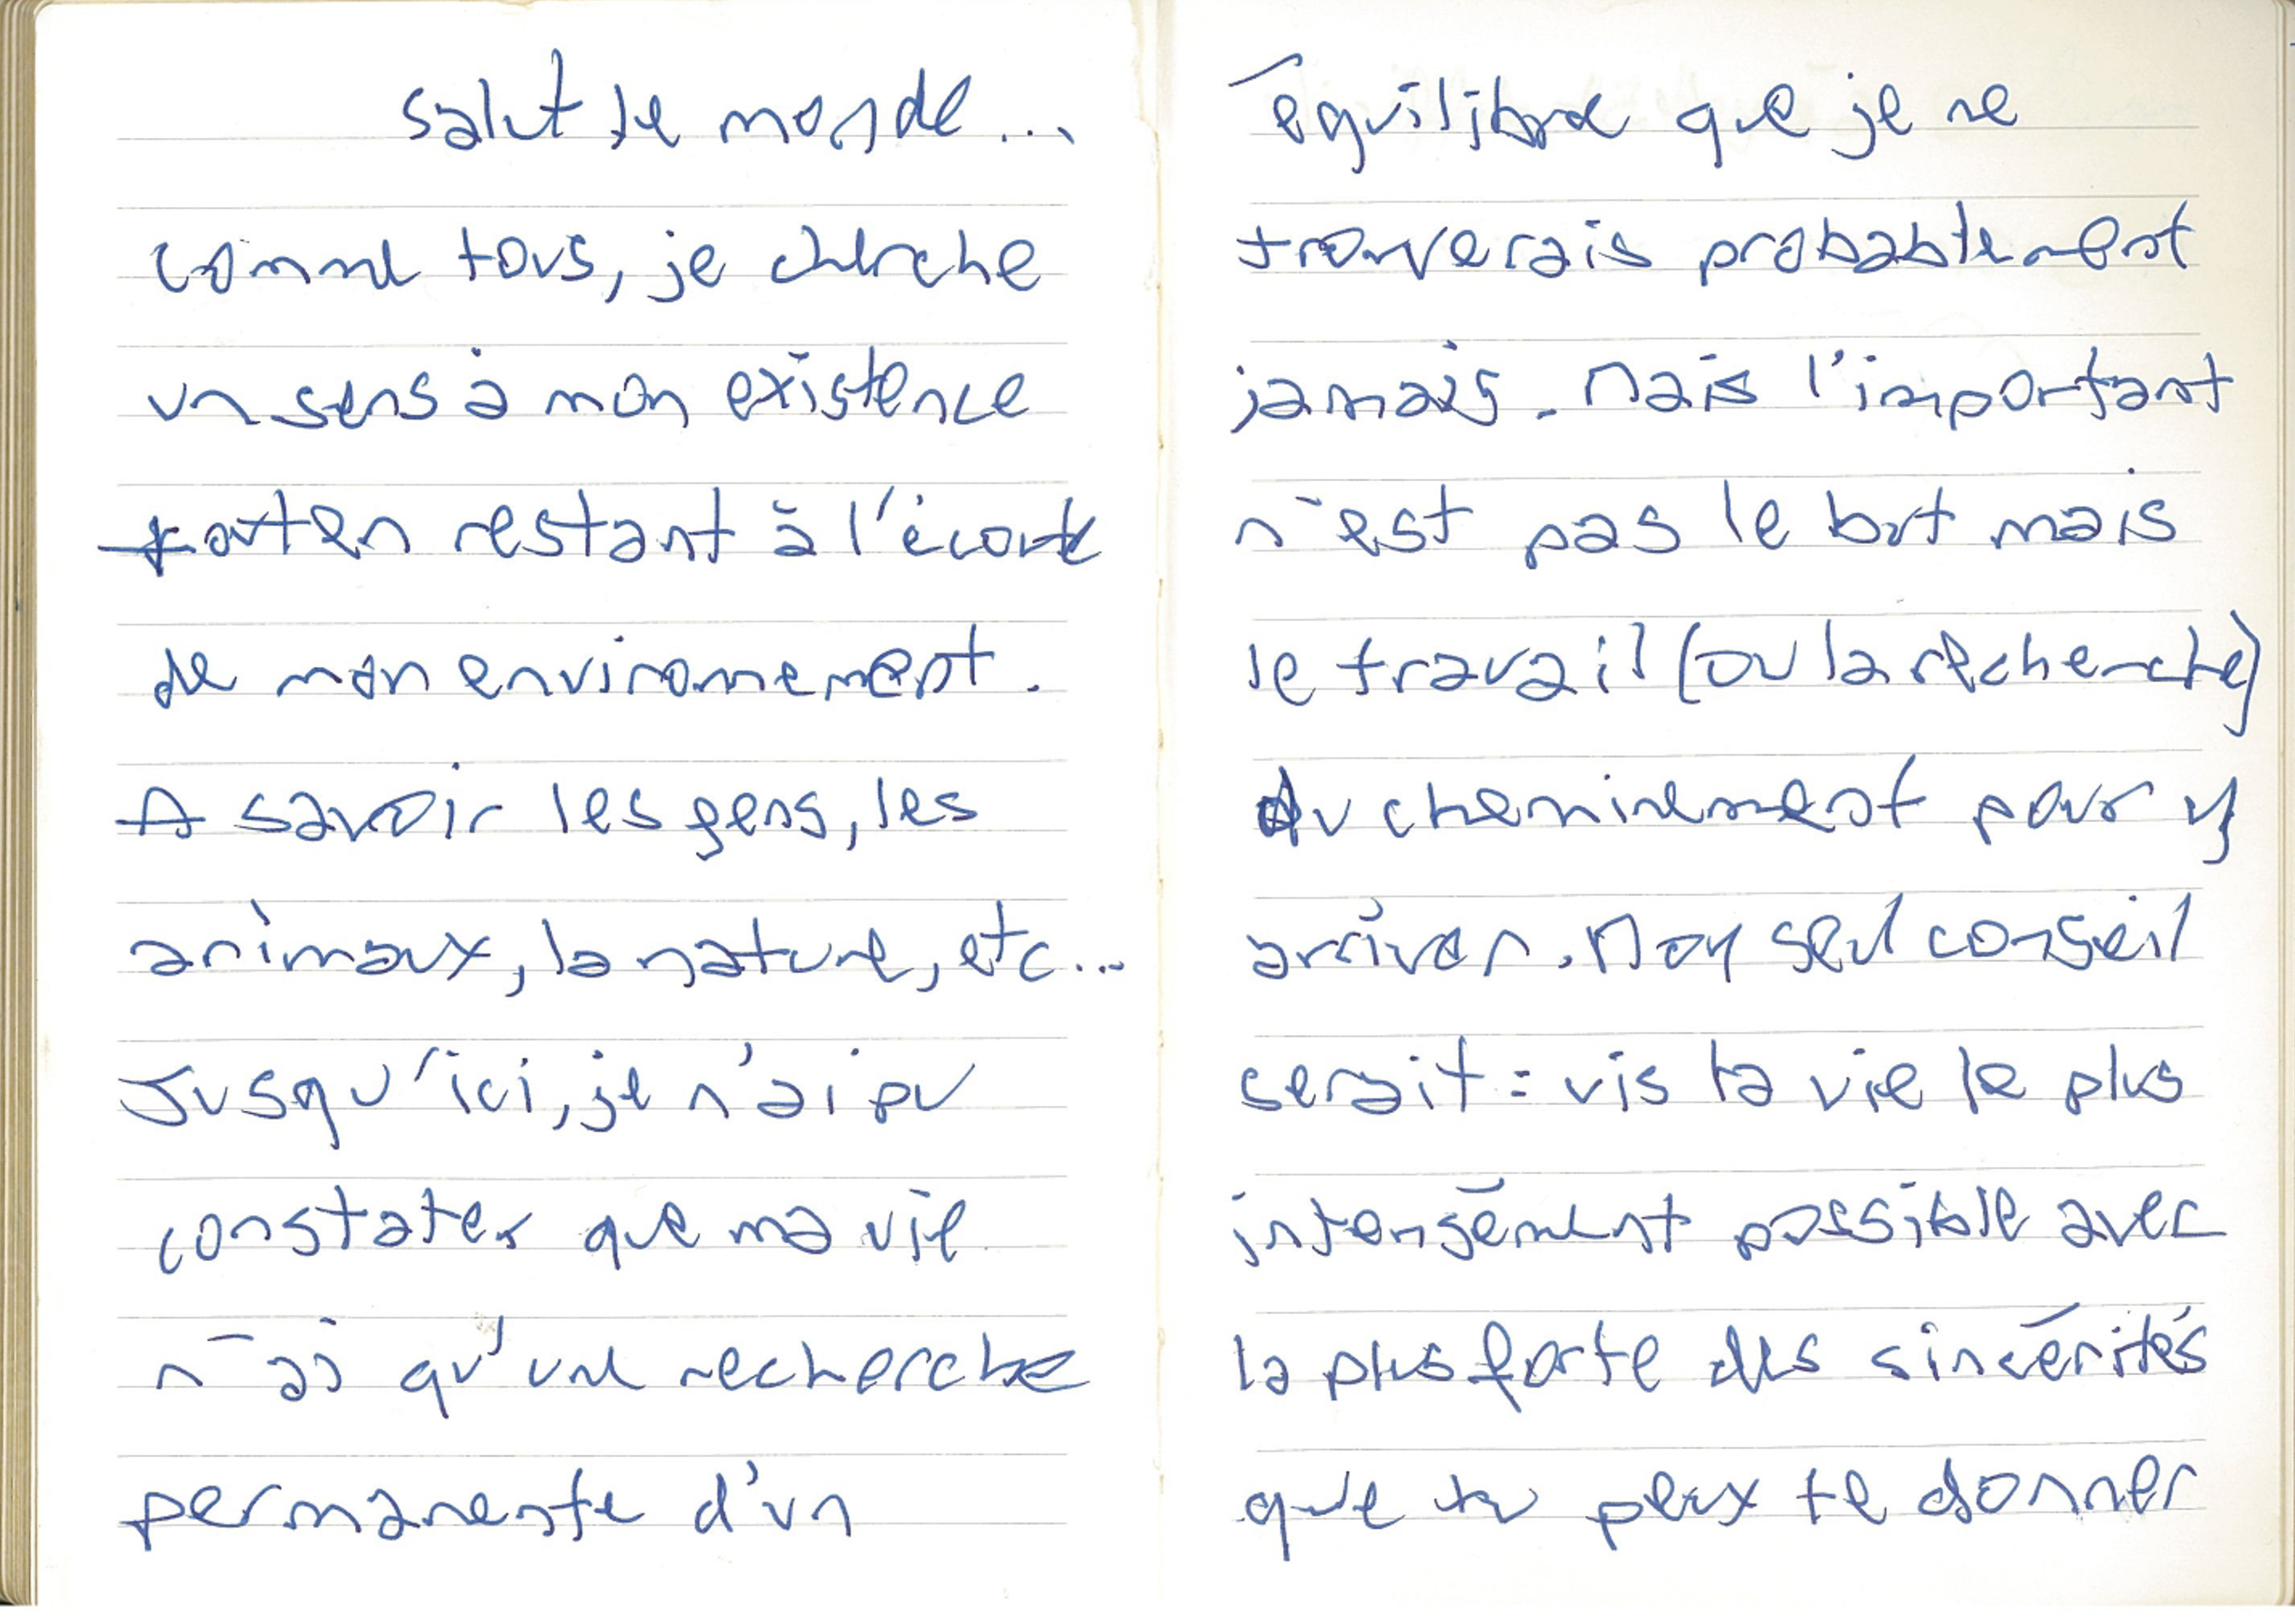 salut le monde...
comme tous, je cherche
un sens à mon existence
tout en restant à l'écoute
de mon environnement.
A savoir les gens, les
animaux, la nature, etc...
Jusqu'ici, je n'ai pu
constater que ma vie
n'ai qu'une recherche
permanente d'un
équilibre que je ne
trouverais probablement
jamais. Mais l'important
n'est pas le but mais
le travail (ou la recherche)
du cheminement pour y
arriver. Mon seul conseil
serait : vis ta vie le plus
intensément possible avec
la plus forte des sincérités
que tu peux te donner